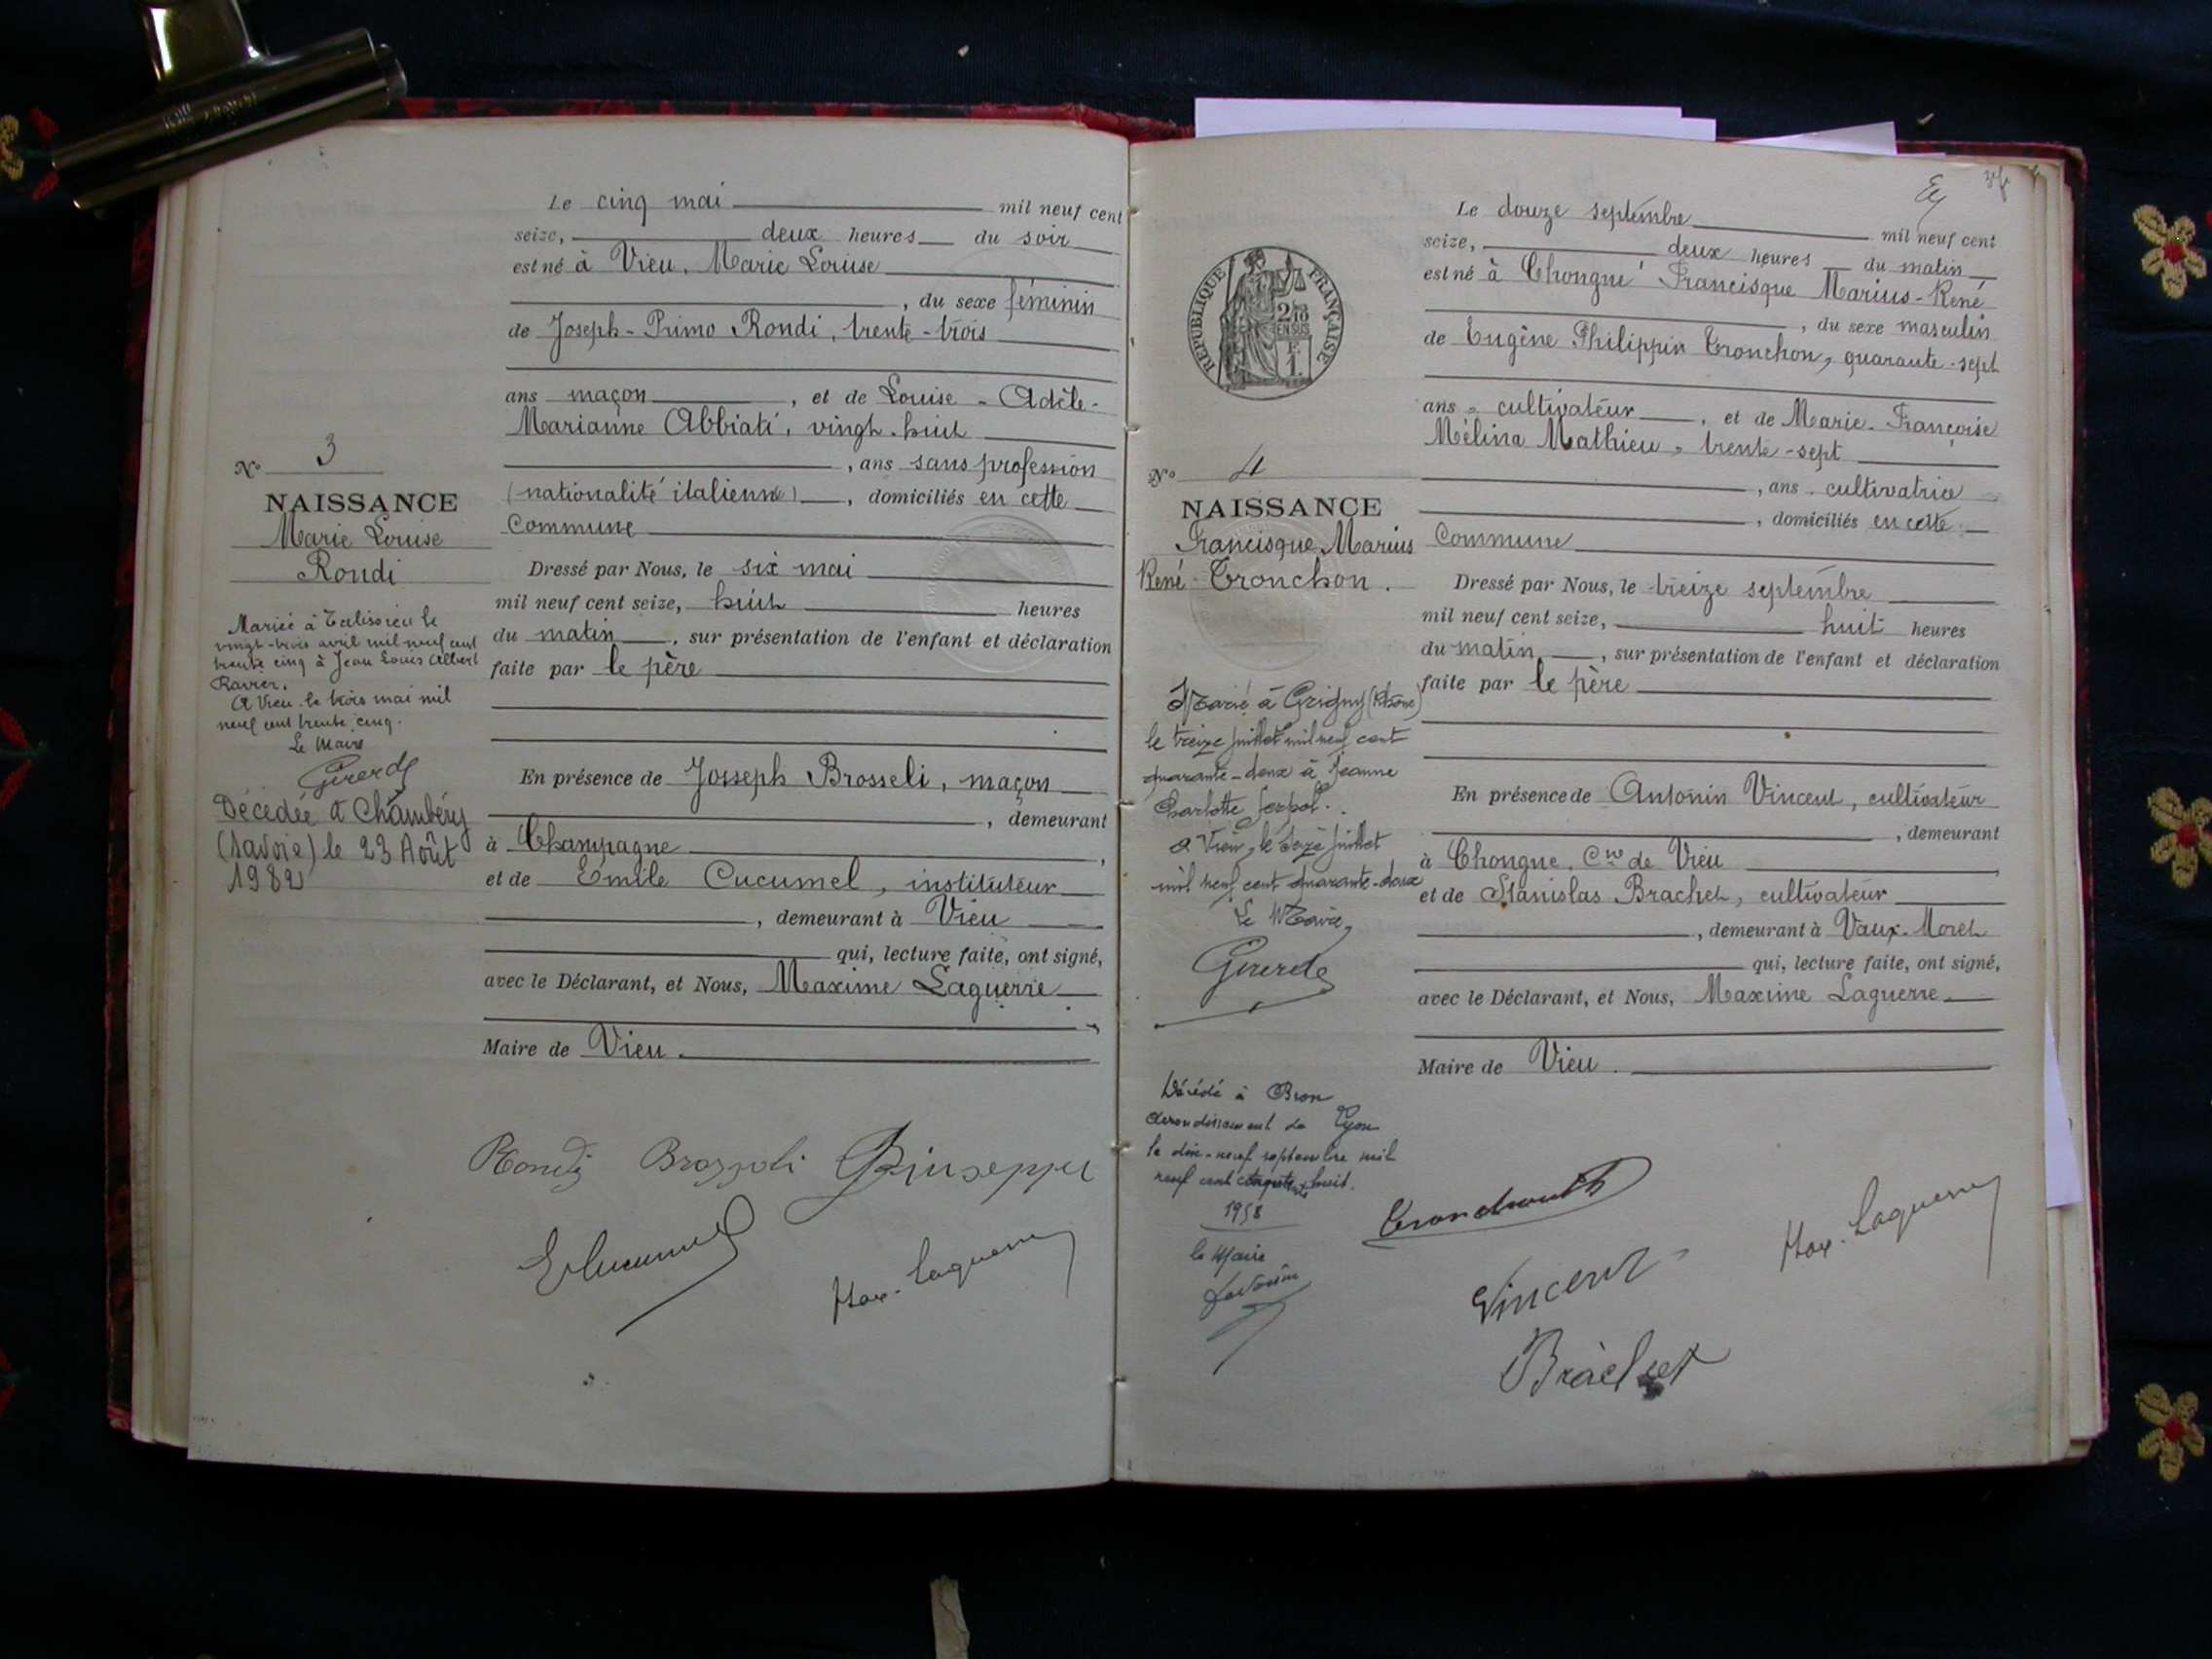 Le cinq mai mil neuf cent
seize, deux heures du soir
est né à Vieu, Marie Louise
, du sexe féminin
de Joseph-Primo Rondi, trente-trois
ans maçon, et de Louise-Adèle-
Marianne Abbiati, vingt-huit
, ans sans profession
(nationalité italienne), domiciliés en cette
Commune
Dressé par Nous, le six mai
mil neuf cent seize, huit heures
du matin, sur présentation de l'enfant et déclaration
faite par le père
En présence de Josseph Brosseli, maçon
, demeurant
à Champagne,
et de Emile Cucumel, instituteur
, demeurant à Vieu
qui, lecture faite, ont signé,
avec le Déclarant, et Nous, Maxime Laguerre
Maire de Vieu.
N° 3
NAISSANCE
Marie Louise
Rondi
Mariée à Talissieu le
vingt-trois avril mil neuf cent
trente cinq à Jean Louis Albert
Ravier.
A Vieu le trois mai mil
neuf cent trente cinq.
Le Maire
Girerd
Décédée à Chambéry
(Savoie) le 23 Août
1982
Rondi Brozzoli Giuseppe
E Cucumel
Max. Laguerre
Le douze septembre mil neuf cent
seize, deux heures du matin
est né à Chongne Francisque Marius-René
, du sexe masculin
de Eugène Philippin Tronchon, quarante-sept
ans, cultivateur, et de Marie-Françoise
Mélina Mathieu, trente-sept
, ans cultivatrice
, domiciliés en cette
Commune
Dressé par Nous, le treize septembre
mil neuf cent seize, huit heures
du matin, sur présentation de l'enfant et déclaration
faite par le père
En présence de Antonin Vincent, cultivateur
, demeurant
à Chongne, Cne de Vieu,
et de Stanislas Brachet, cultivateur
, demeurant à Vaux-Moret
qui, lecture faite, ont signé,
avec le Déclarant, et Nous, Maxime Laguerre
Maire de Vieu.
RÉPUBLIQUE FRANÇAISE
2/10
EN SUS
F.
1.
N° 4
NAISSANCE
Francisque Marius
René Tronchon.
Marié à Grigny (Rhône)
le treize juillet mil neuf cent
quarante-deux à Jeanne
Charlotte
A Vieu, le seize juillet
mil neuf cent quarante-deux
Le Maire,
Girerd
Décédé à Bron
Arrondissement de Lyon
le dix-neuf septembre mil
neuf cent cinquante huit.
1958
le Maire
Tronchon Ph
Vincent
Brachet
Max. Laguerre